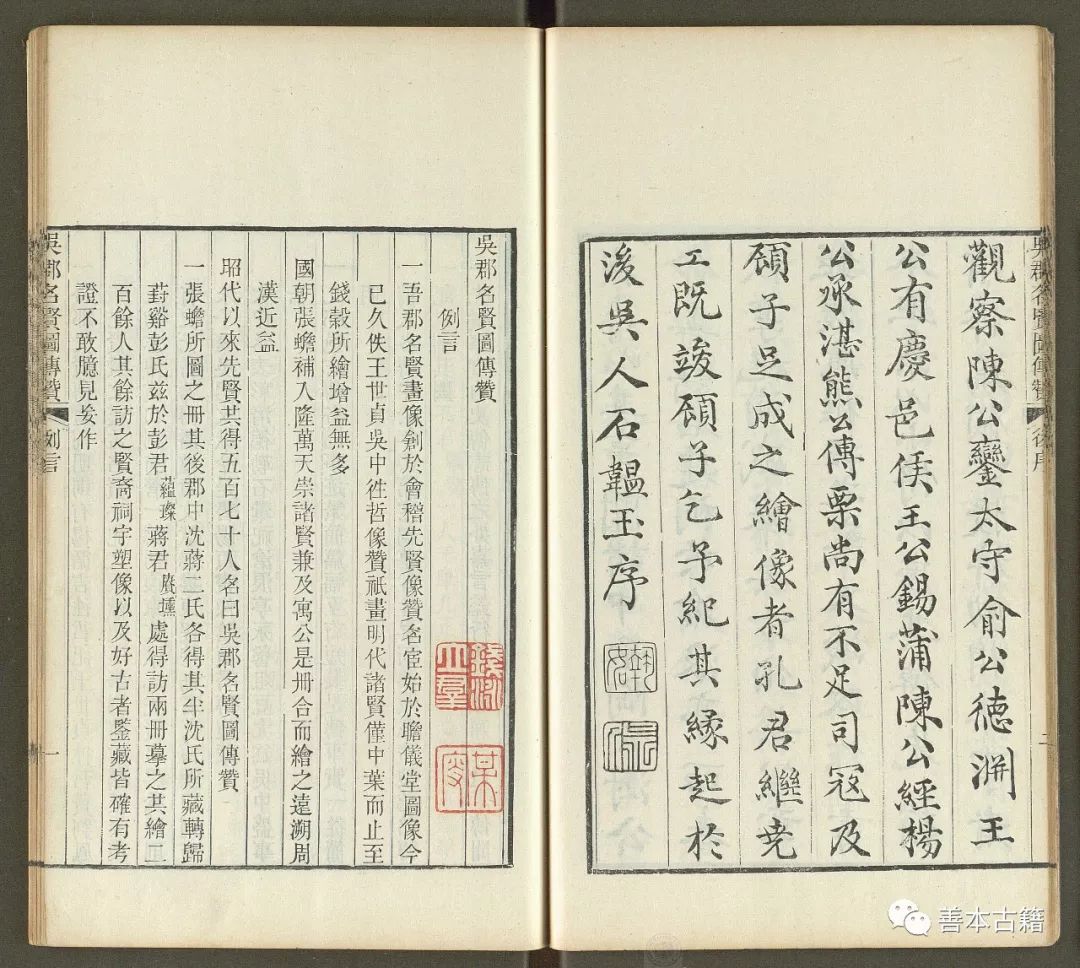 觀察陳公鑾太守俞公德淵王
公有慶邑侯王公錫蒲陳公經楊
公承湛熊公傳栗尚有不足司冦及
頋子足成之繪像者孔君繼尭
工既竣頋子乞予紀其縁起於
後吳人石韞玉序
吳郡名賢圖傳贊
後序
二
吳郡名賢圖傳贊
例言
一吾郡名賢畫像創於會稽先賢像贊名宦始於瞻儀堂圖像今
已久佚王世貞吳中徃哲像贊祇畫明代諸賢僅中葉而止至
錢榖所繪增益無多
國朝張蟾補入隆萬天崇諸賢兼及寓公是冊合而繪之遠溯周
漢近益
昭代以來先賢共得五百七十人名曰吳郡名賢圖傳贊
一張蟾所圖之冊其後郡中沈蔣二氏各得其半沈氏所藏轉歸
葑谿彭氏兹於彭君蘊璨蔣君賡壎處得訪兩冊摹之其繪二
百餘人其餘訪之賢裔祠宇塑像以及好古者鑒藏皆確有考
證不敢臆見妄作
吳郡名賢圖傳贊
例言
一
善本古籍